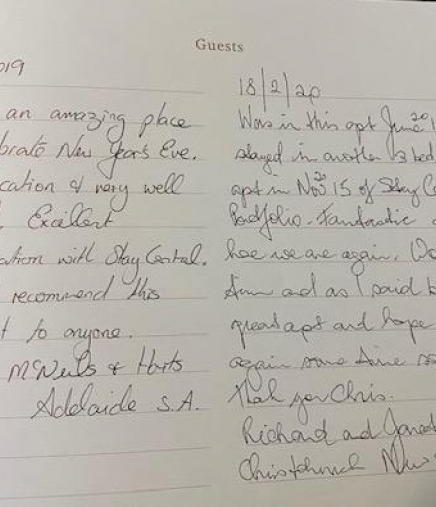 Guests
019
an amazing place
brate New Years Eve.
cation & very well
Excellent
ation with Stay Central.
recommend this
t to anyone.
McNeils & Harts
Adelaide S.A.
18/2/20
Was in this apt June
stayed in another 3 bed
apt in Nov 15 of Stay C
Portfolio. Fantastic
here we are again. W
and as I said b
great apt and hope
again some time
Thank you Chris.
Richard and
Christchurch New